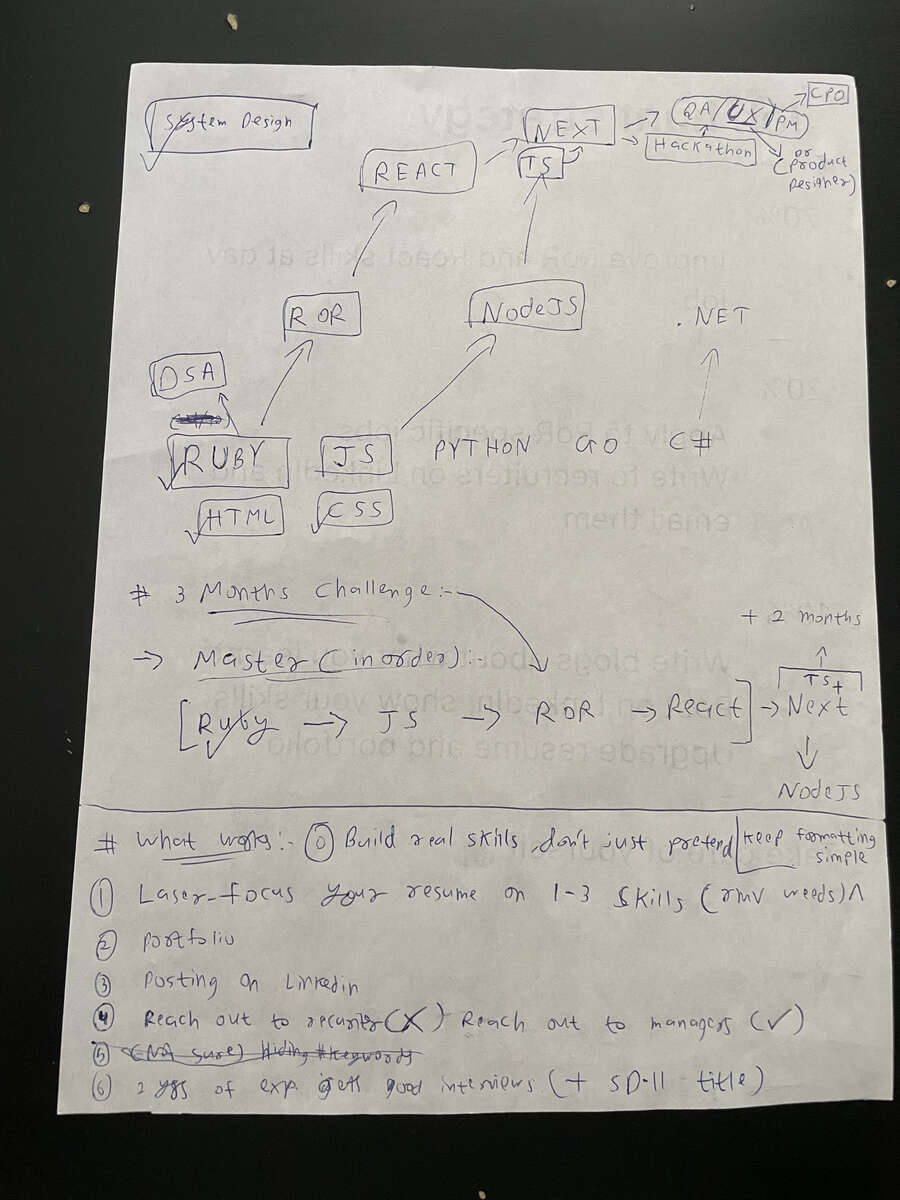 System Design
NEXT
QA/UX/PM
CPO
TS
Hackathon
or
(Product
Designer)
REACT
ROR
NodeJS
.NET
DSA
RUBY
JS
PYTHON
GO
C#
HTML
CSS
# 3 Months Challenge:-
+ 2 months
→ Master (in order):-
TS+
[Ruby → JS → ROR → React] → Next
NodeJS
# What works:- ⓪ Build real skills, don't just pretend
keep formatting
simple
① Laser-focus your resume on 1-3 skills (rmv weeds) ^
② portfolio
③ Posting on Linkedin
④ Reach out to recuriter (X) Reach out to managers (✓)
⑤ (Not sure) Hiding #keywords
⑥ 2 yrs of exp. gets good interviews (+ SD-II title)